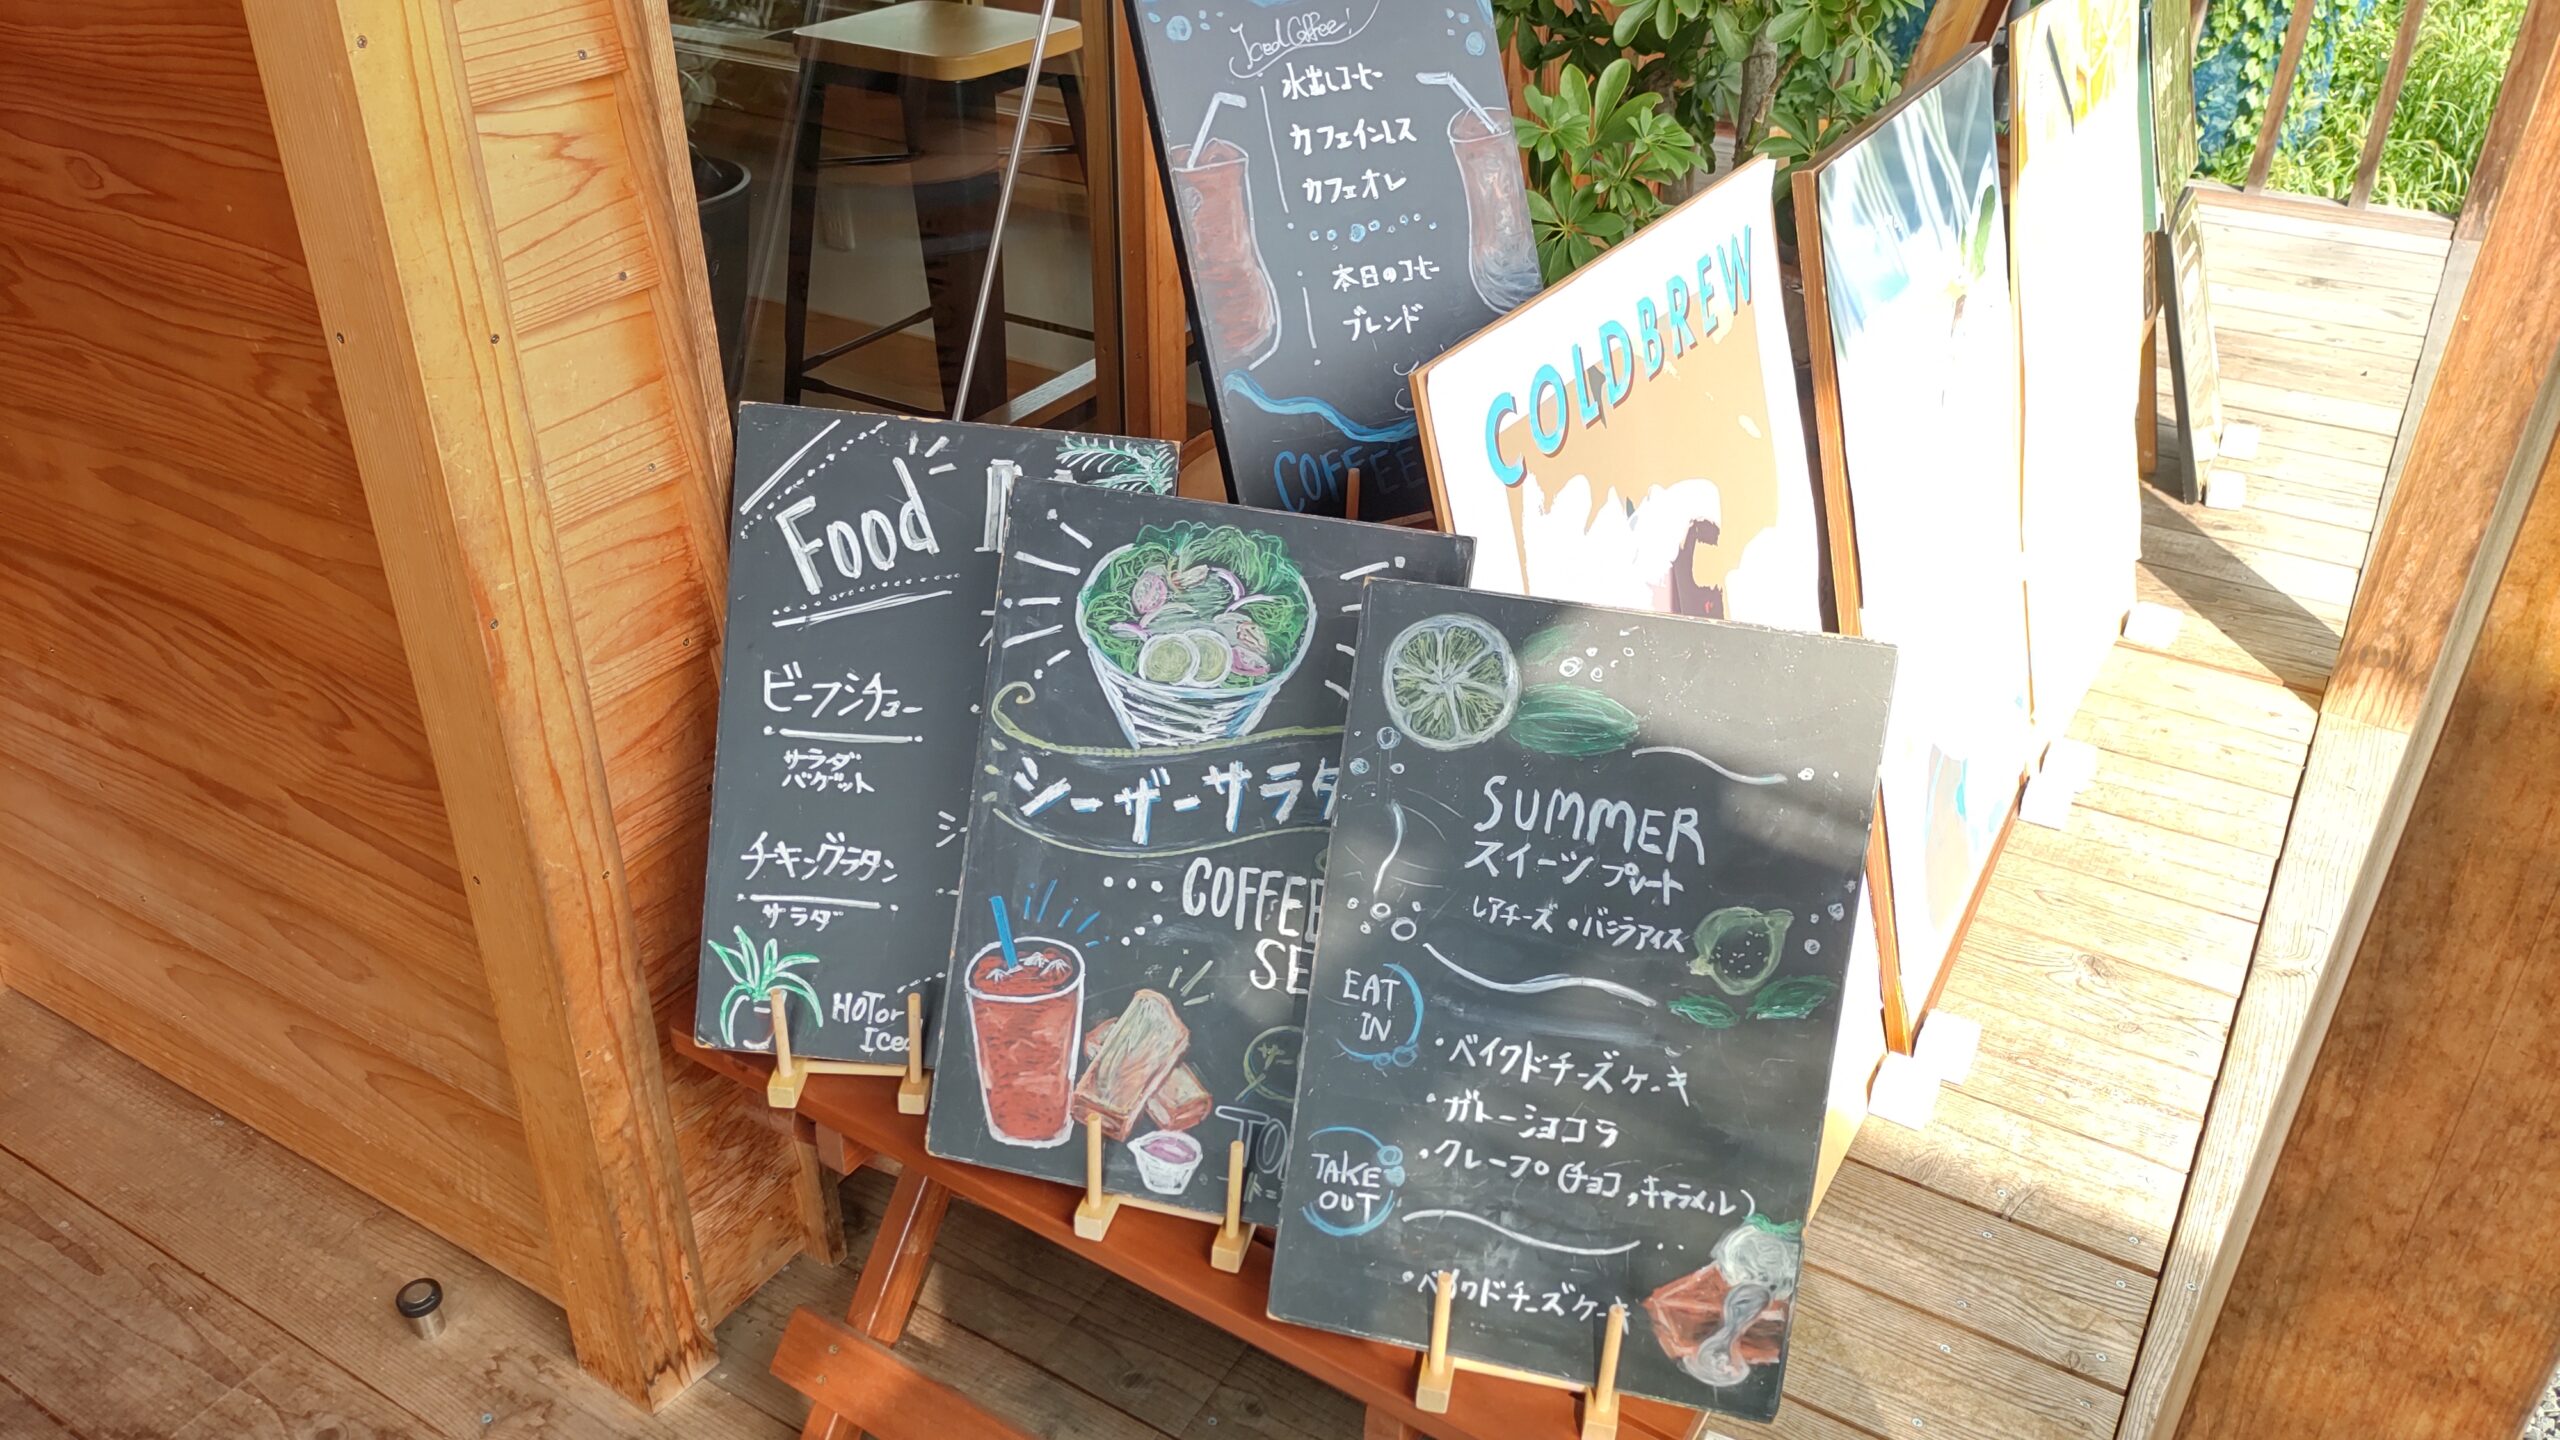 Iced Coffee!
水出しコーヒー
カフェインレス
カフェオレ
本日のコーヒー
ブレンド
COFFEE
COLDBREW
Food
ビーフシチュー
サラダ
バゲット
チキングラタン
サラダ
HOT or
Iced
シーザーサラダ
COFFEE
SE
SUMMER
スイーツプレート
レアチーズ・バニラアイス
EAT
IN
・ベイクドチーズケーキ
・ガトーショコラ
・クレープ(チョコ,キャラメル)
TAKE
OUT
・ベイクドチーズケーキ